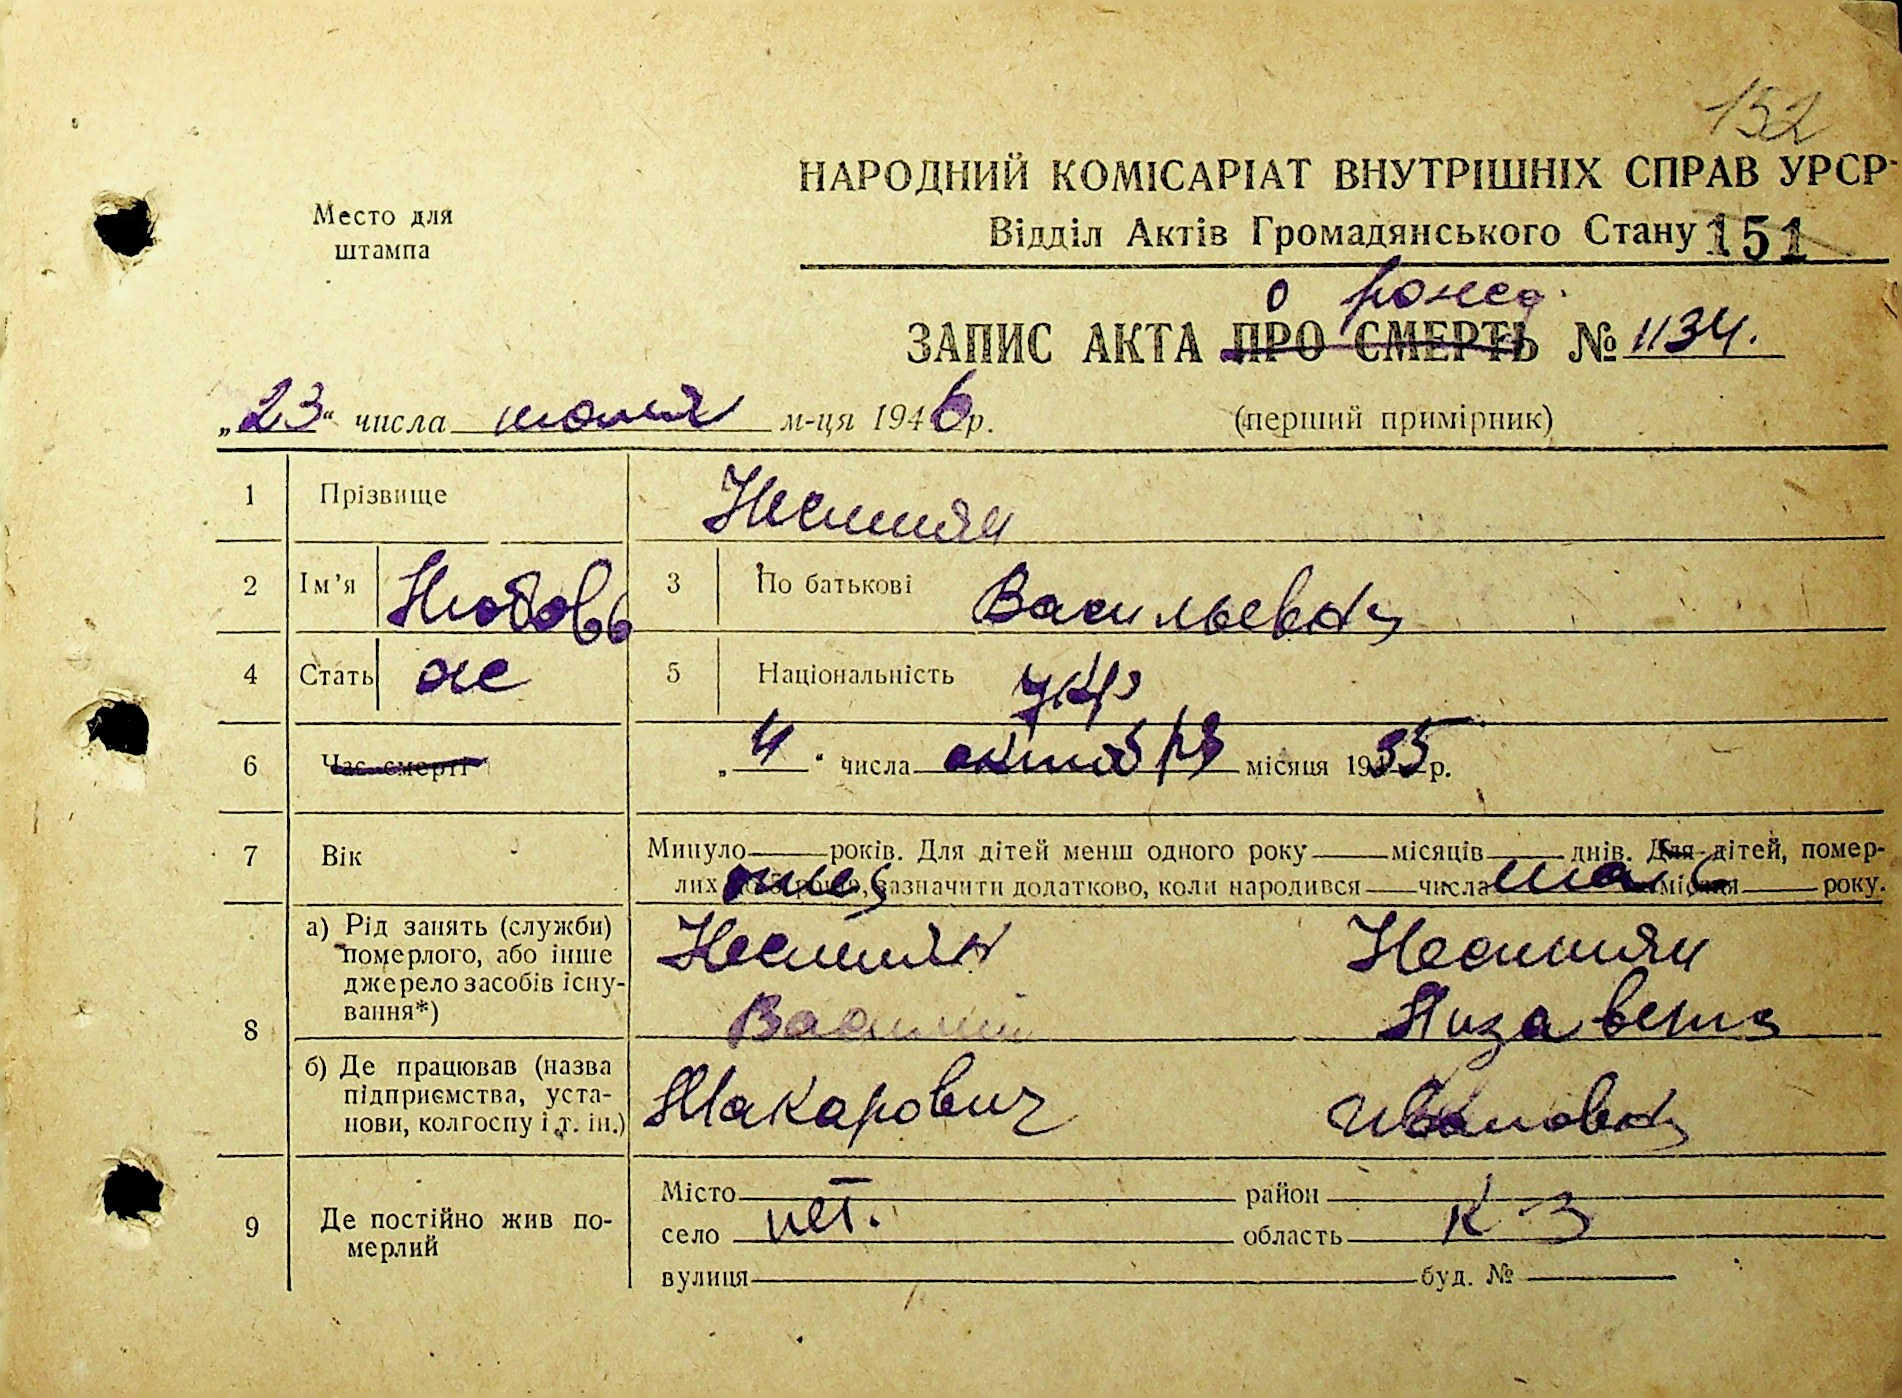 152
НАРОДНИЙ КОМІСАРІАТ ВНУТРІШНІХ СПРАВ УРСР
Место для
штампа
Відділ Актів Громадянського Стану 151
о рожд.
ЗАПИС АКТА ПРО СМЕРТЬ № 1134.
„23" числа м-ця 1946 р.
(перший примірник)
1 Прізвище
2 Ім'я Любовь 3 По батькові Васильевна
4 Стать ж 5 Національність укр
6 Час смерті „4" числа октября місяця 1935 р.
7 Вік Минуло років. Для дітей менш одного року місяців днів. Для дітей, помер-
лих до 5 років, зазначити додатково, коли народився числа місяця року.
отец мать
8 а) Рід занять (служби)
померлого, або інше
джерело засобів існу-
вання*)
Василий Лизавета
б) Де працював (назва
підприємства, уста-
нови, колгоспу і т. ін.)
Макарович Ивановна
9 Де постійно жив по-
мерлий
Місто район
село нет. область к-з
вулиця буд. №